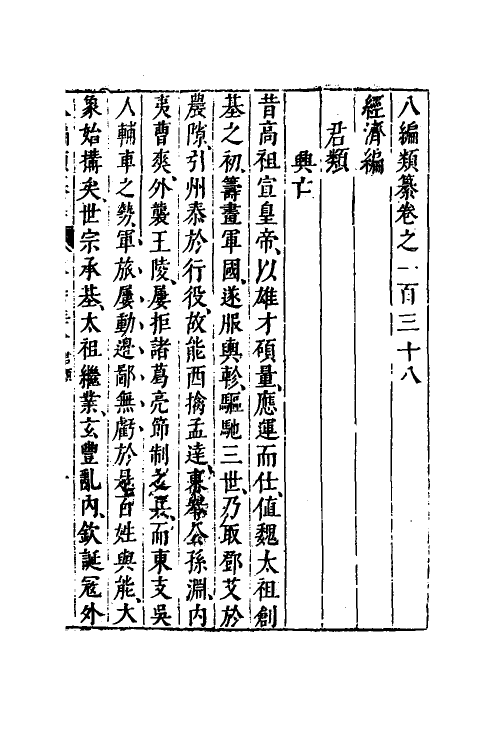 八編類纂卷之一百三十八
經濟編
君類
興亡
昔高祖宣皇帝以雄才碩量應運而仕值魏太祖創
基之初籌畫軍國遂服輿軫驅馳三世乃取鄧艾於
農隙引州泰於行役故能西擒孟達東舉公孫淵內
夷曹爽外襲王陵屢拒諸葛亮節制之兵而東支吳
人輔車之勢軍旅屢動邊鄙無虧於是百姓與能大
象始搆矣世宗承基太祖繼業玄豐亂內欽誕寇外